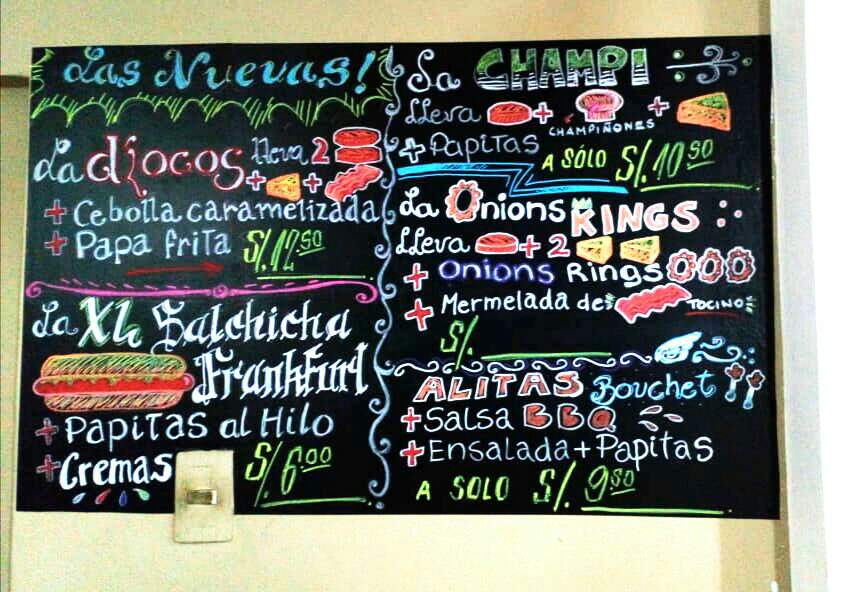 Las Nuevas!
La d{ocos lleva 2
+ +
+ Cebolla caramelizada
+ Papa frita S/. 12.50
La XL Salchicha
Frankfurt
+ Papitas al Hilo
+ Cremas S/. 6.00
La CHAMPI
lleva + +
CHAMPIÑONES
+ Papitas A SÓLO S/. 10.90
La Onions KINGS
lleva + 2
+ Onions Rings
+ Mermelada de TOCINO
S/.
ALITAS Bouchet
+ Salsa BBQ
+ Ensalada + Papitas
A SOLO S/. 9.50